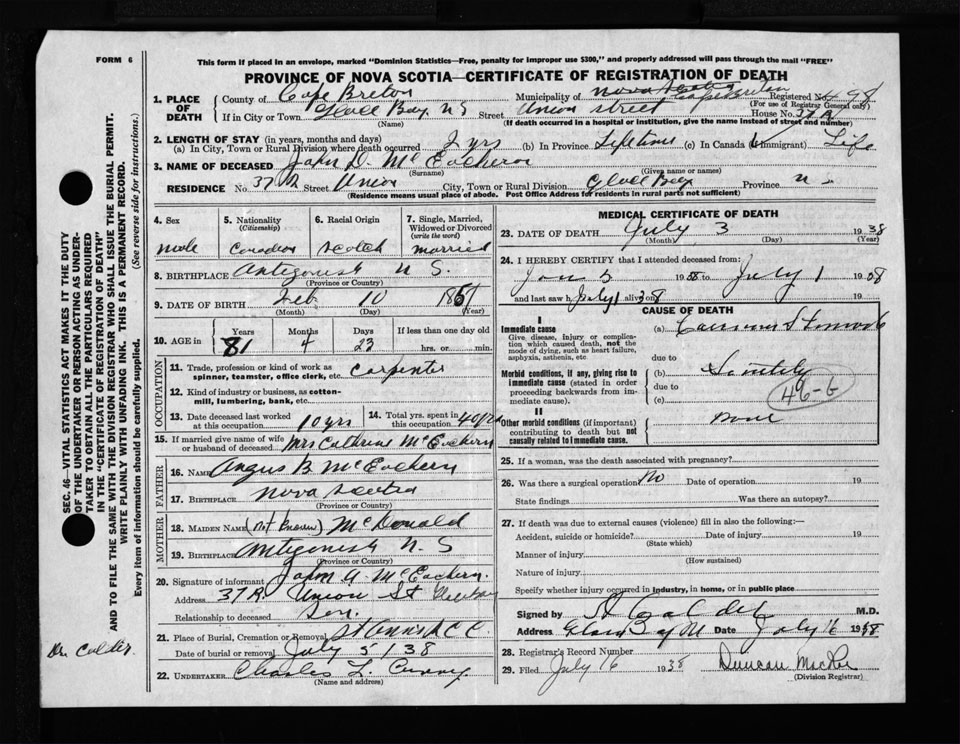 FORM 6
This form if placed in an envelope, marked "Dominion Statistics—Free, penalty for improper use $300," and properly addressed will pass through the mail "FREE"
PROVINCE OF NOVA SCOTIA—CERTIFICATE OF REGISTRATION OF DEATH
1. PLACE OF DEATH
County of Cape Breton Municipality of Cape Breton Registered No. 498
(For use of Registrar General only)
If in City or Town Glace Bay, N S Street Union Street House No. 37 R
(Name) (If death occurred in a hospital or institution, give the name instead of street and number)
2. LENGTH OF STAY (in years, months and days)
(a) In City, Town or Rural Division where death occurred 2 yrs (b) In Province Lifetime (c) In Canada (if immigrant) Life
3. NAME OF DECEASED John D. McEacheron
(Surname) (Given name or names)
RESIDENCE No. 37 R Street Union City, Town or Rural Division Glace Bay Province N S
(Residence means usual place of abode. Post Office Address for residents in rural parts not sufficient)
4. Sex
male
5. Nationality
(Citizenship)
Canadian
6. Racial Origin
Scotch
7. Single, Married, Widowed or Divorced
(write the word)
married
8. BIRTHPLACE Antigonish N S.
(Province or Country)
9. DATE OF BIRTH Feb 10 18
(Month) (Day) (Year)
10. AGE in
Years Months Days If less than one day old
81 4 23 hrs. or min.
OCCUPATION
11. Trade, profession or kind of work as
spinner, teamster, office clerk, etc. Carpenter
12. Kind of industry or business, as cotton-
mill, lumbering, bank, etc.
13. Date deceased last worked
at this occupation 10 yrs
14. Total yrs. spent in
this occupation 40 yrs
15. If married give name of wife
or husband of deceased Mrs Catherine McEachern
FATHER
16. NAME Angus B McEachern
17. BIRTHPLACE Nova Scotia
(Province or Country)
MOTHER
18. MAIDEN NAME (Not Known) McDonald
19. BIRTHPLACE Antigonish N. S
(Province or Country)
20. Signature of informant John A. McEachern.
Address 37 R Union St Glace Bay
Relationship to deceased Son.
21. Place of Burial, Cremation or Removal St Anns R C C.
Date of burial or removal July 5/38
22. UNDERTAKER Charles L. Curry
(Name and address)
MEDICAL CERTIFICATE OF DEATH
23. DATE OF DEATH July 3 1938
(Month) (Day) (Year)
24. I HEREBY CERTIFY that I attended deceased from:
Jan 5 1938 to July 1 1938
and last saw h July 1 alive 38
CAUSE OF DEATH
I
Immediate cause
Give disease, injury or complication which caused death, not the mode of dying, such as heart failure, asphyxia, asthenia, etc
(a) Carcinoma Stomach
due to
Morbid conditions, if any, giving rise to immediate cause (stated in order proceeding backwards from immediate cause).
(b) Senility
due to
(c)
46-G
II
Other morbid conditions (if important) contributing to death but not causally related to immediate cause.
none
25. If a woman, was the death associated with pregnancy?
26. Was there a surgical operation? No Date of operation 19
State findings Was there an autopsy?
27. If death was due to external causes (violence) fill in also the following:—
Accident, suicide or homicide? Date of injury 19
(State which)
Manner of injury
(How sustained)
Nature of injury
Specify whether injury occurred in industry, in home, or in public place
Signed by A Calder M.D.
Address Glace Bay Date July 16 1938
28. Registrar's Record Number
29. Filed July 16 1938 Duncan MacRae
(Division Registrar)
SEC. 46—VITAL STATISTICS ACT MAKES IT THE DUTY
OF THE UNDERTAKER OR PERSON ACTING AS UNDER-
TAKER TO OBTAIN ALL THE PARTICULARS REQUIRED
IN THE "CERTIFICATE OF REGISTRATION OF DEATH"
AND TO FILE THE SAME WITH THE DIVISION REGISTRAR WHO SHALL ISSUE THE BURIAL PERMIT.
WRITE PLAINLY WITH UNFADING INK. THIS IS A PERMANENT RECORD.
Every item of information should be carefully supplied. (See reverse side for instructions.)
Dr. Calder.